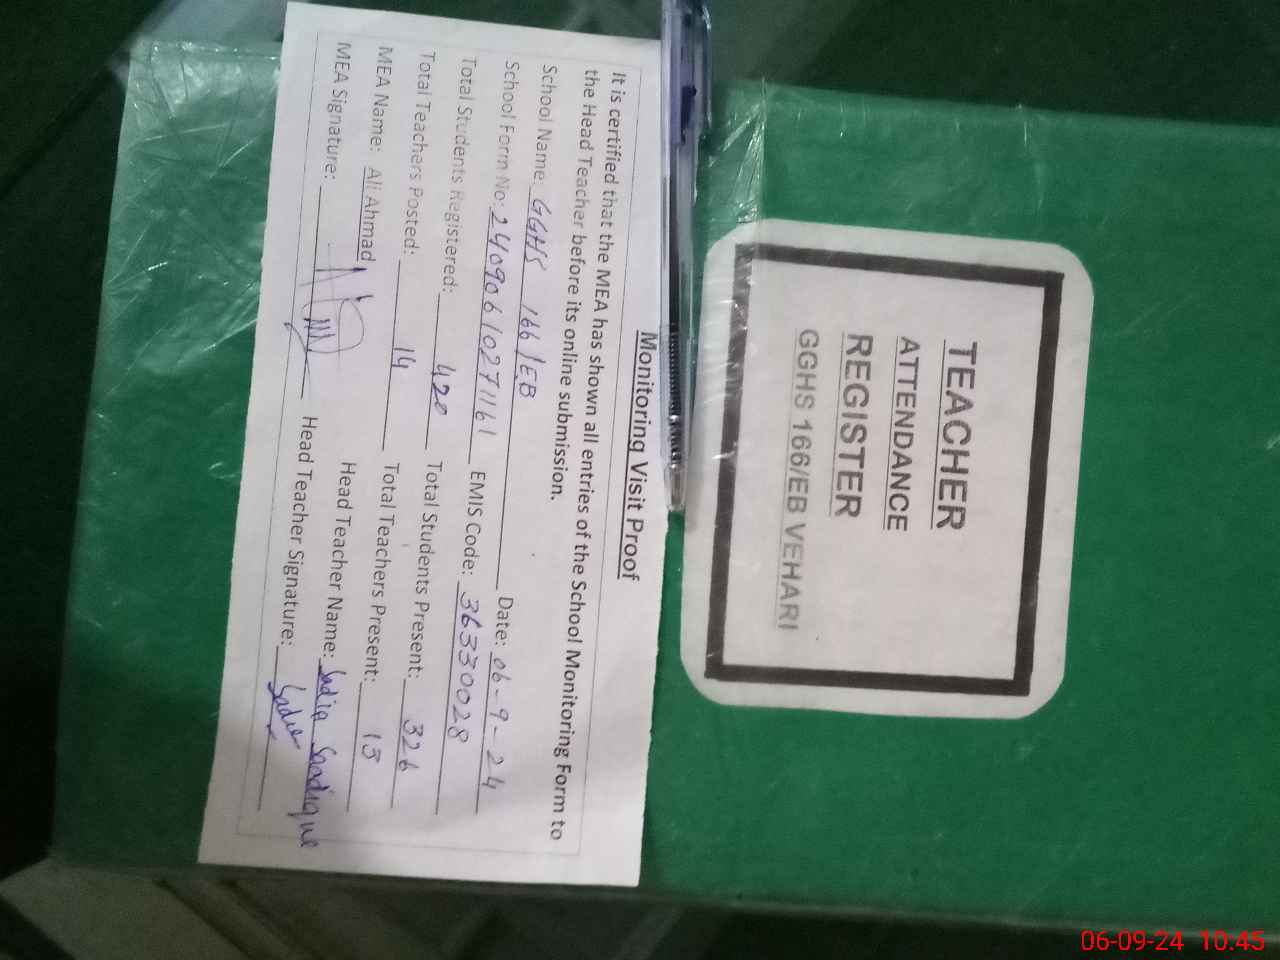 TEACHER
ATTENDANCE
REGISTER
GGHS 166/EB VEHARI
Monitoring Visit Proof
It is certified that the MEA has shown all entries of the School Monitoring Form to
the Head Teacher before its online submission.
School Name: GGHS 166/EB Date: 06-9-24
School Form No: 24090610271161 EMIS Code: 36330028
Total Students Registered: 420 Total Students Present: 326
Total Teachers Posted: 14 Total Teachers Present: 13
MEA Name: Ali Ahmad Head Teacher Name: Sadia Saadique
MEA Signature: Head Teacher Signature: Sadia
06-09-24 10:45